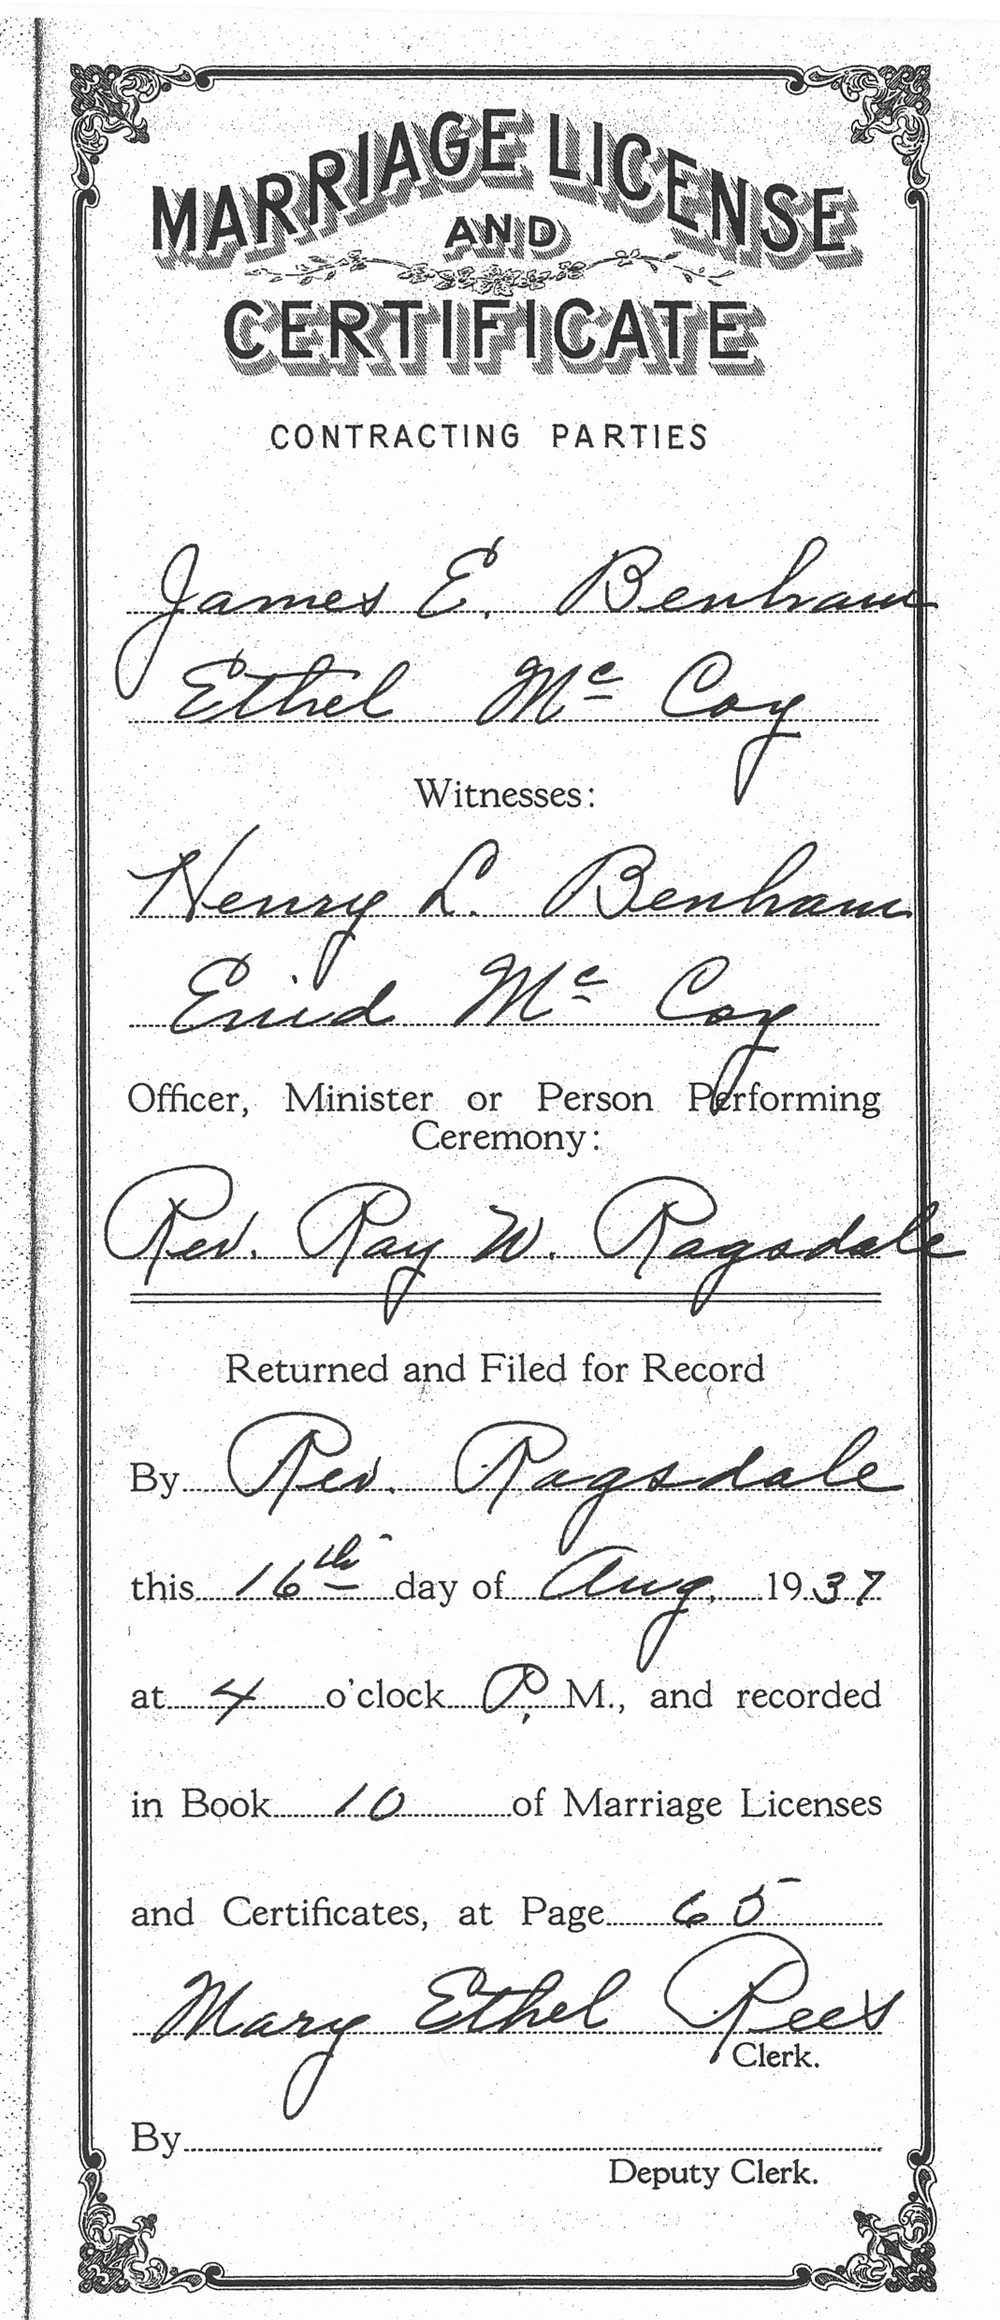 MARRIAGE LICENSE
AND
CERTIFICATE
CONTRACTING PARTIES
James E. Benham
Ethel Mc Coy
Witnesses:
Henry L. Benham
Enid Mc Coy
Officer, Minister or Person Performing
Ceremony:
Rev. Ray W. Ragsdale
Returned and Filed for Record
By Rev. Ragsdale
this 16th day of Aug. 1937
at 4 o'clock P. M., and recorded
in Book 10 of Marriage Licenses
and Certificates, at Page 65
Mary Ethel Rees
Clerk.
By
Deputy Clerk.